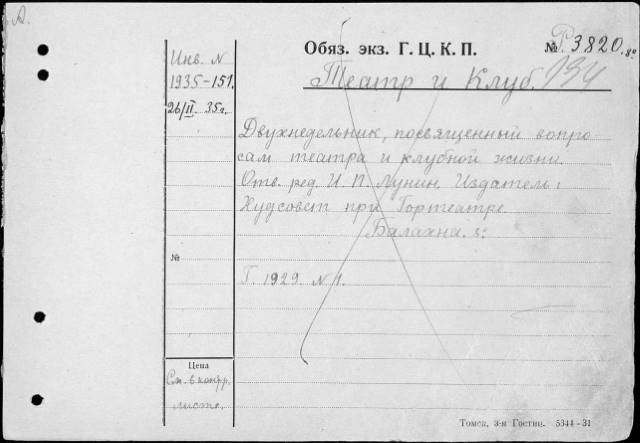 А.
Обяз. экз. Г. Ц. К. П.
№ Р 3820. 8°
Театр и Клуб. 134
Инв. N
1935-151.
26/II. 35г.
Двухнедельник, посвященный вопро-
сам театра и клубной жизни.
Отв. ред. И. П. Лунин. Издатель:
Худсовет при Гортеатре.
Балахна.
№
Г. 1929. N 1.
Цена
См. в контр.
листе.
Томск, 3-я Гостип. 5344-31